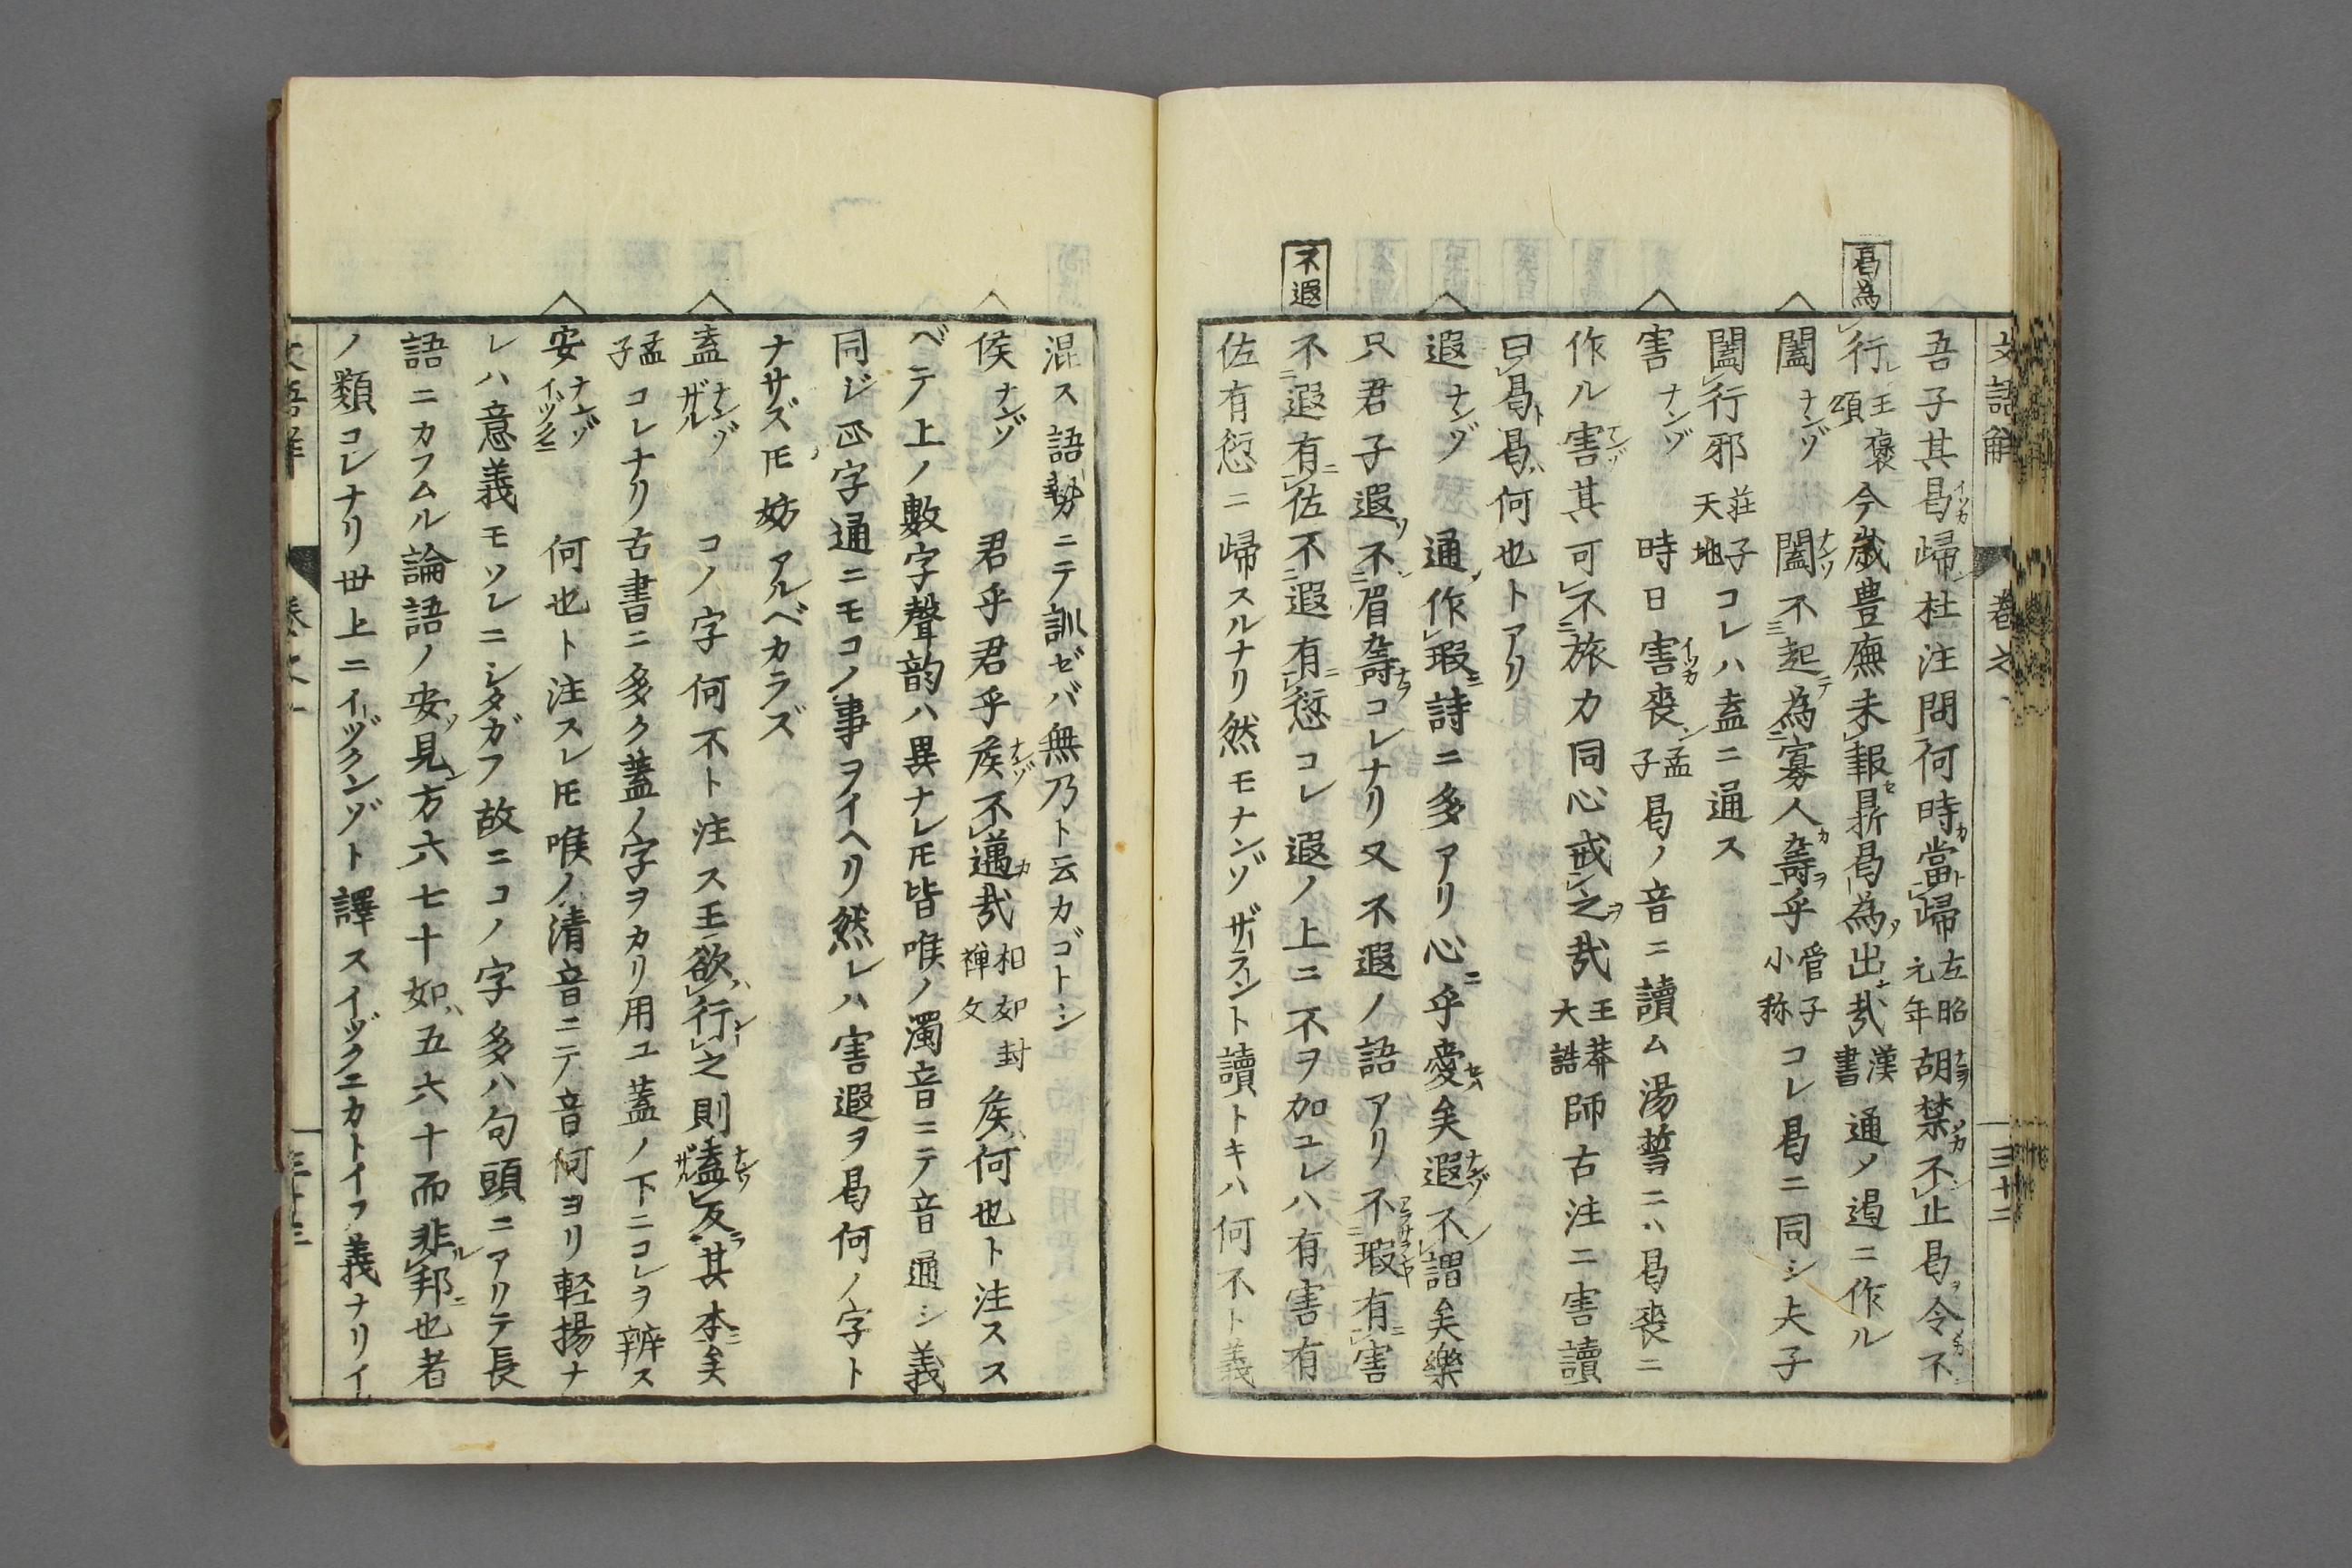 曷為
不遐
文語解 巻之一 三十二
吾子其曷歸杜注問何時當歸左昭元年胡禁不止曷令不
行王褒頌今歲豊廡未報鼎曷為出哉漢書通ノ遏ニ作ル
闔ナンゾ 闔不起為寡人壽乎管子小称コレ曷ニ同シ夫子
闔行邪荘子天地コレハ盍ニ通ス
害ナンゾ 時日害喪孟子曷ノ音ニ讀ム湯誓ニハ曷喪ニ
作ル害其可不旅力同心戒之哉王莽大誥師古注ニ害讀
曰曷曷何也トアリ
遐ナンゾ 通作瑕詩ニ多アリ心乎愛矣遐不謂矣樂
只君子遐不眉壽コレナリ又不遐ノ語アリ不瑕有害
不遐有佐不遐有愆コレ遐ノ上ニ不ヲ加ユレハ有害有
佐有愆ニ歸スルナリ然モナンゾザラント讀トキハ何不ト義
混ス語勢ニテ訓ゼバ無乃ト云カゴトシ
侯ナンゾ 君乎君乎侯不邁哉相如封禅文侯何也ト注スス
ベテ上ノ數字聲韵ハ異ナレ𪜈皆喉ノ濁音ニテ音通シ義
同ジ四字通ニモコノ事ヲイヘリ然レハ害遐ヲ曷何ノ字ト
ナサズ𪜈妨アルベカラズ
盍ナンゾザル コノ字何不ト注ス王欲行之則盍反其本矣
孟子コレナリ古書ニ多ク蓋ノ字ヲカリ用ユ蓋ノ下ニコレヲ辨ス
安ナンゾイヅクニ 何也ト注スレ𪜈喉ノ清音ニテ音何ヨリ軽揚ナ
レハ意義モソレニシタガフ故ニコノ字多ハ句頭ニアリテ長
語ニカフムル論語ノ安見方六七十如五六十而非邦也者
ノ類コレナリ世上ニイヅクンゾト譯スイヅクニカトイフ義ナリイ